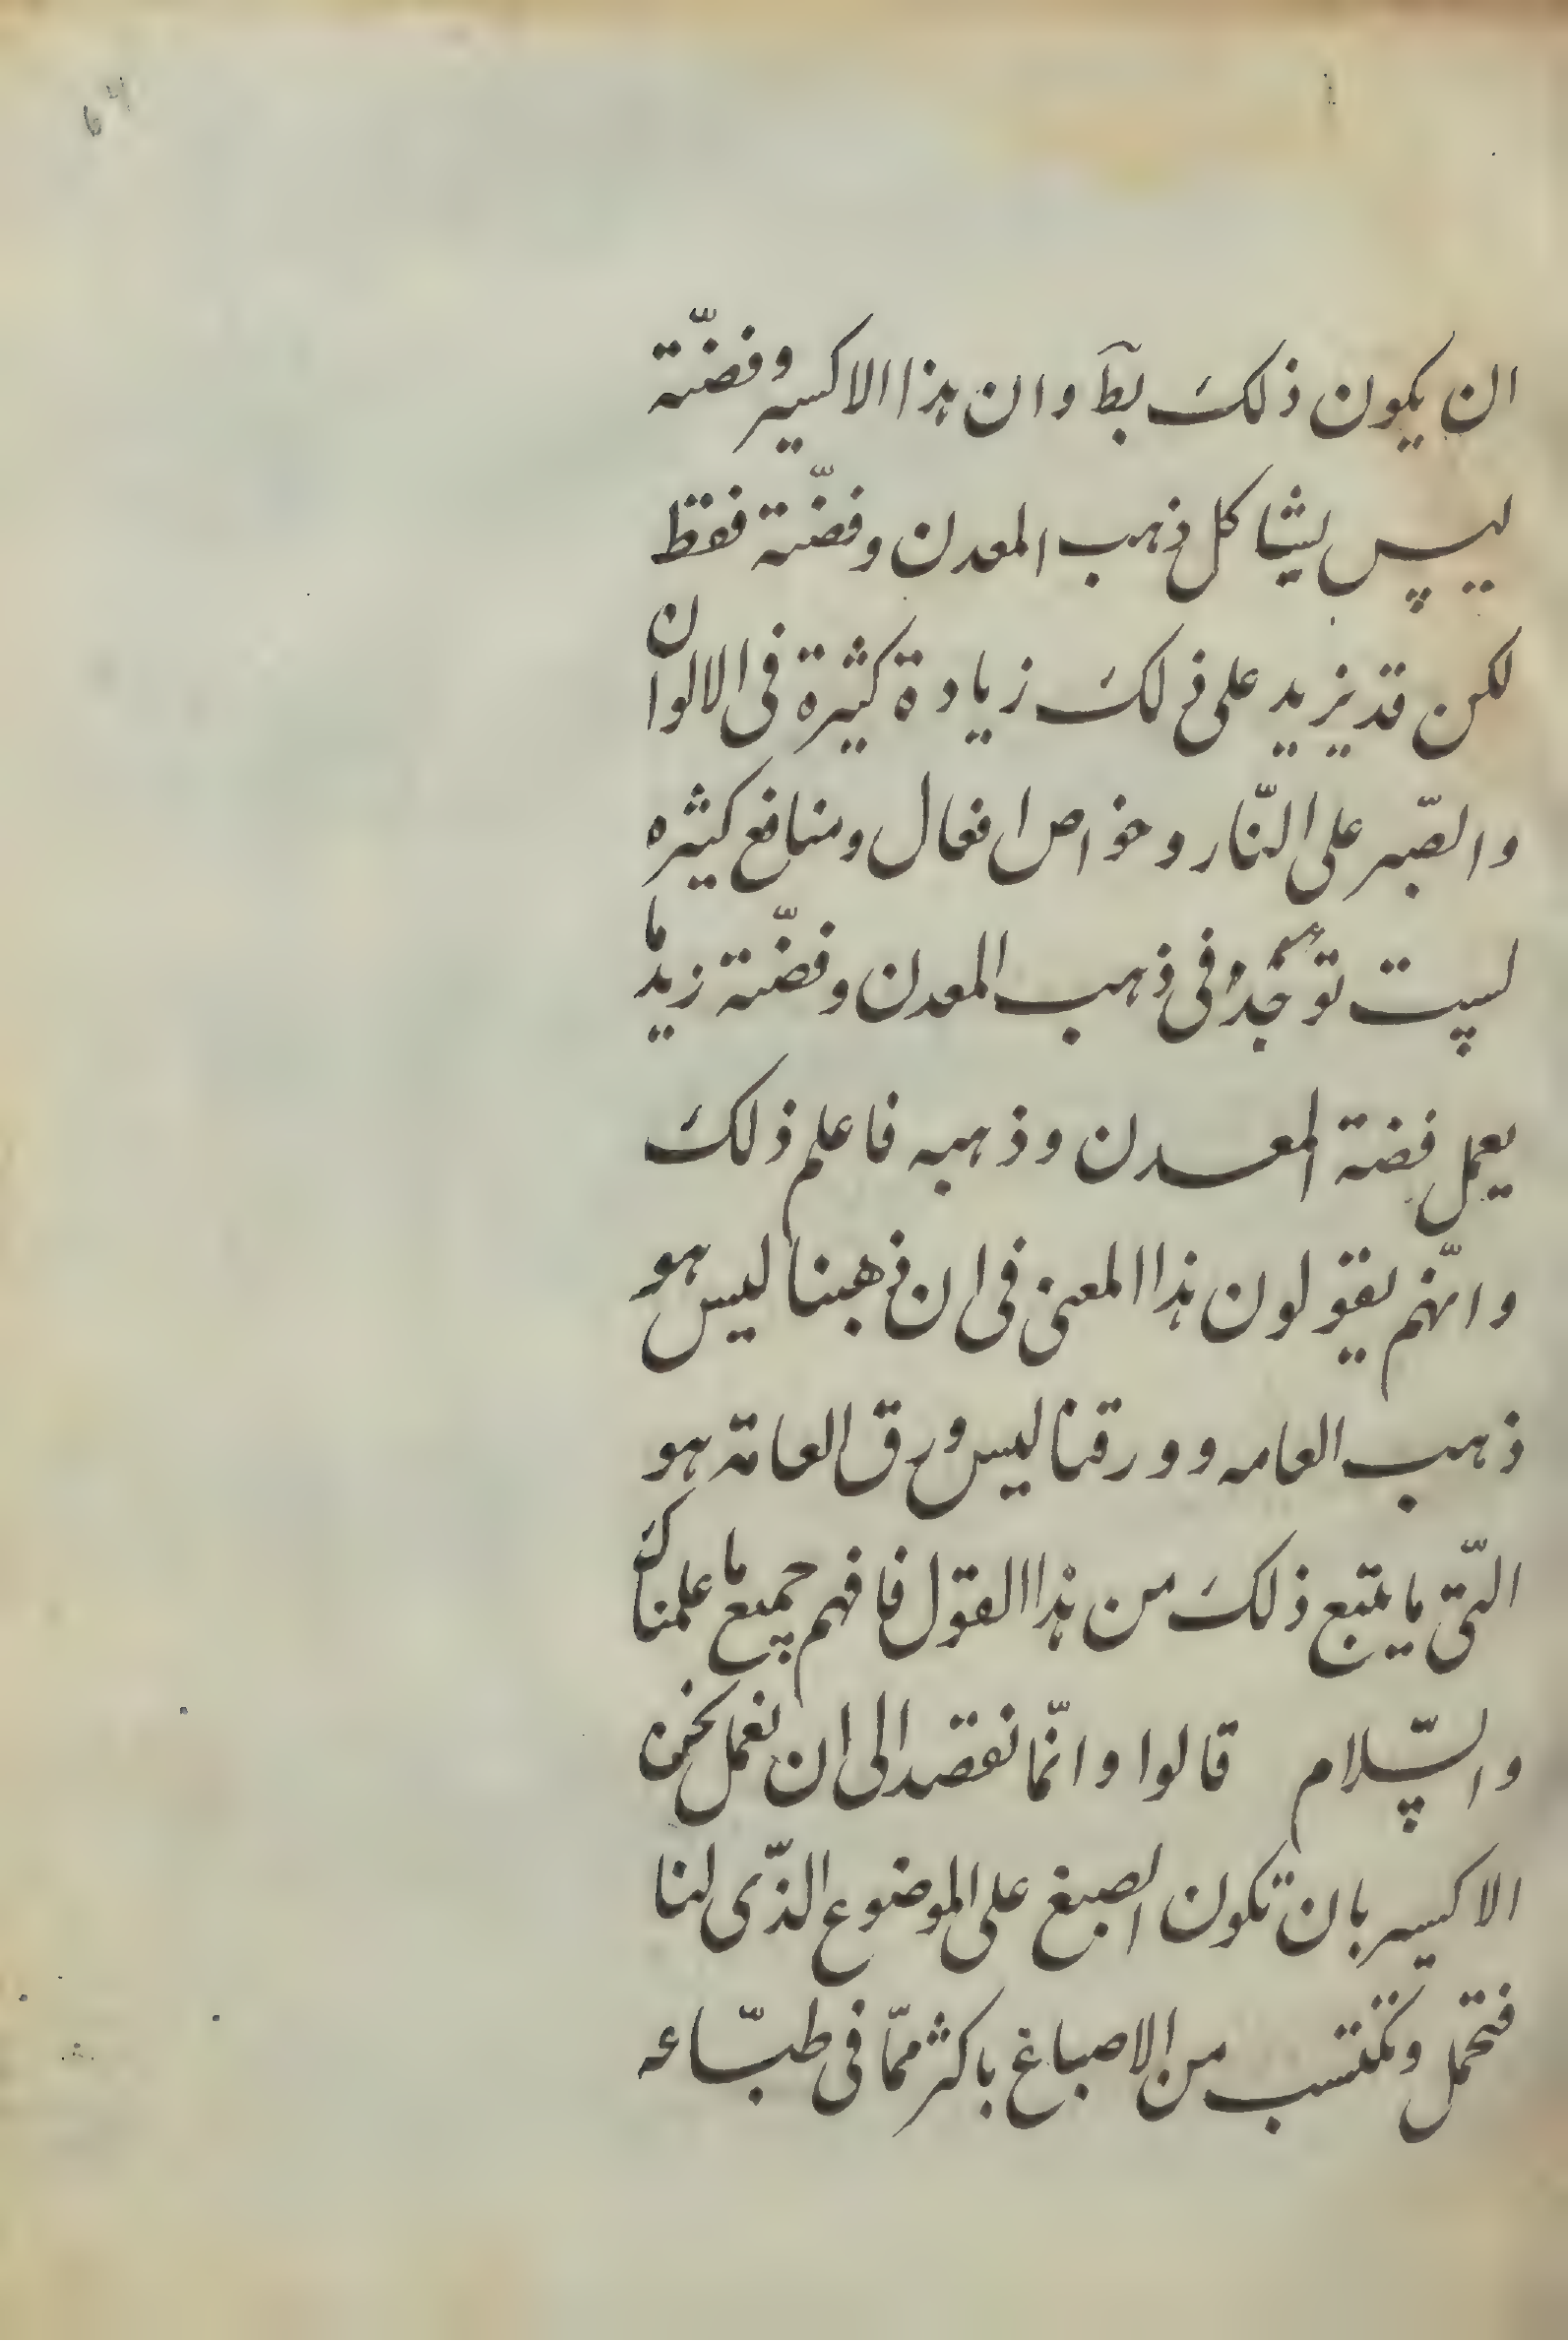 ان يكون ذلك بطآ وان هذا الاكسير وفضّته
ليس يشاكل ذهب المعدن وفضّته فقط
لكن قد يزيد على ذلك زيادة كثيرة فى الالوان
والصّبر على النّار وخواص افعال ومنافع كثيره
ليست توجد فى ذهب المعدن وفضّته زيد ما
يعمل فضة المعدن وذهبه فاعلم ذلك
وانّهم يقولون هذا المعنى فى ان ذهبنا ليس هو
ذهب العامه وورقنا ليس ورق العامة هو
الّتى ما يتبع ذلك من هذا القول فافهم جميع ما علمناك
والسّلام قالوا وانّما نقصد الى ان نعمل نحن
الاكسير بان تكون الصبغ على الموضوع الذّى لنا
فتحمل وتكتسب من الاصباغ باكثر ممّا فى طبّاعه